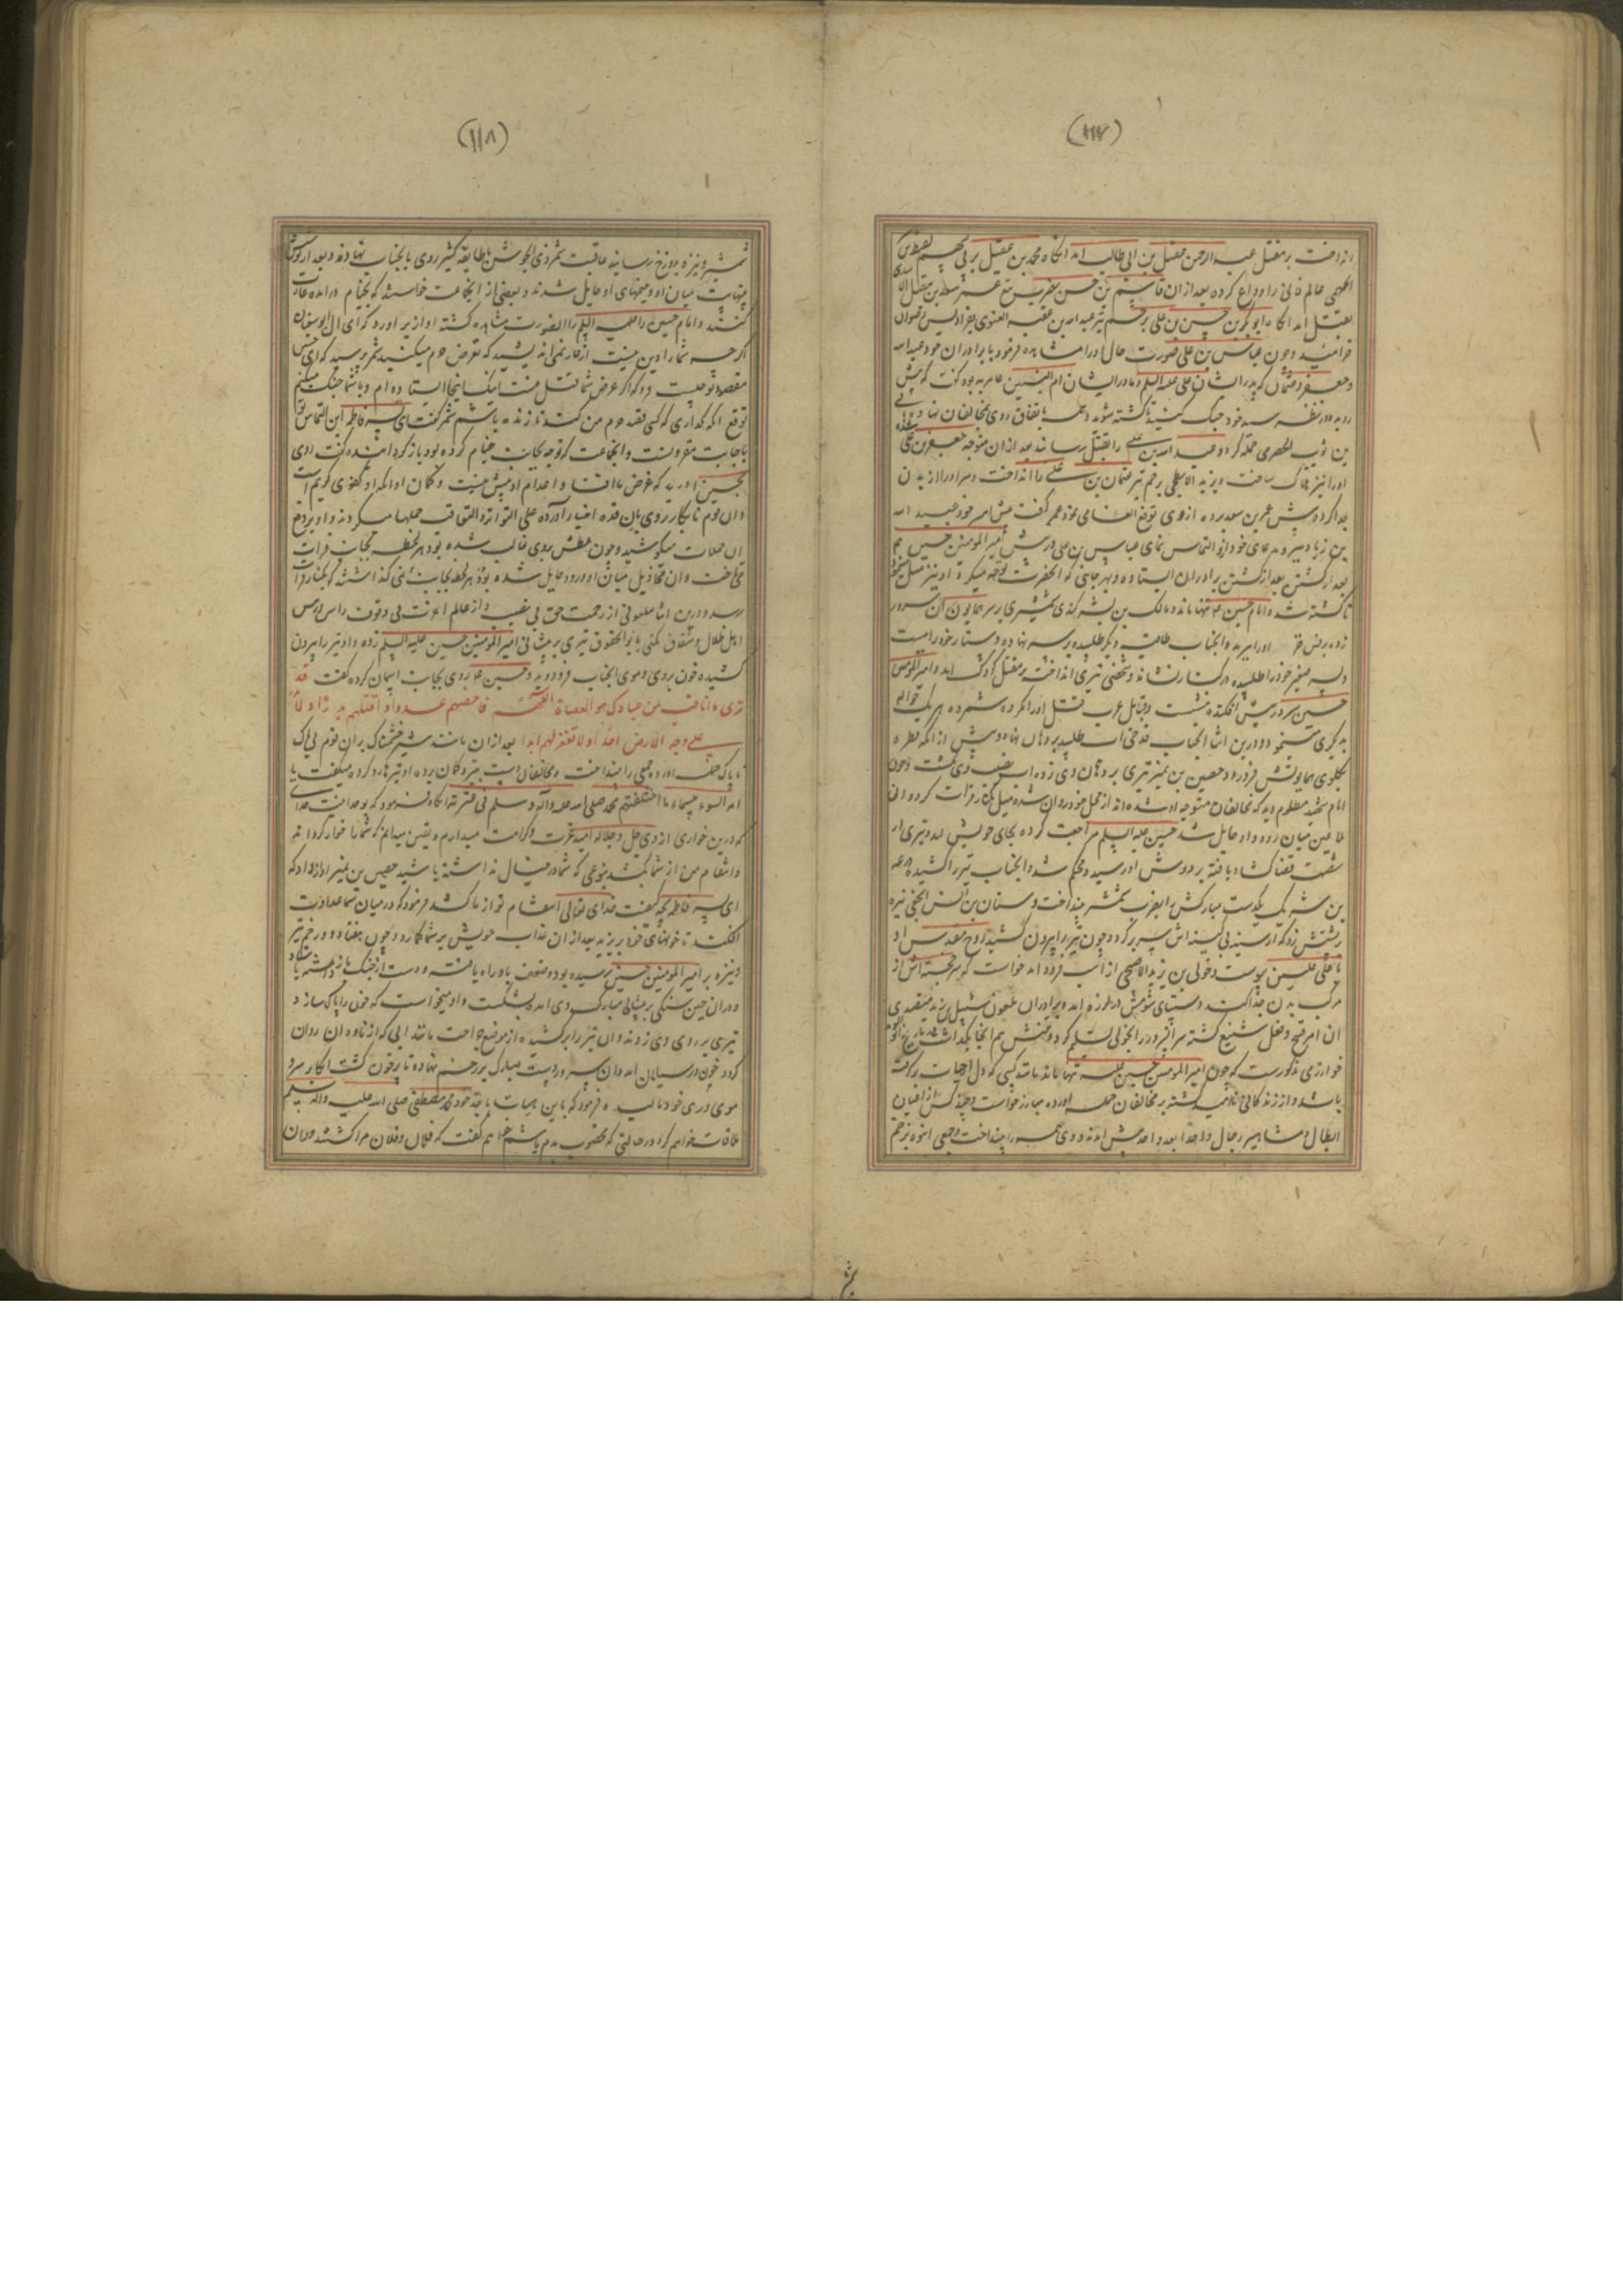 (۱۱۷)
انداخت بر مقتل عبدالرحمن عقیل بن ابی طالب امد انگاه محمد بن عقیل بر تیر لقیط بن
الجهنی عالم فانی را وداع کرده بعد ازان قاسم بن حسن بضرب تیغ عمر سعد بن مقبل الاسدی
بقتل امد انگاه ابوبکر بن حسین بن علی بزخم تیر عبدالله بن عقبه الغنوی بفرادیس رضوان
خرامید و چون عباس بن علی صورت حال را مشاهده فرمود با برادران خود عبدالله
و جعفر و عثمان که پدر ایشان علی علیه السلم و مادر ایشان ام البنین عامریه بود گفت که پیش
روید و در نظر سید خود جنک کنید تا کشته شوید همه باتفاق روی بمخالفان نهادند هانی
بن ثویب الحضرمی حمله کرد و عبدالله بن علی را بقتل رساند بعد ازان متوجه جعفر بن علی شده
او را نیز هلاک ساخت و یزید الاصبحی بزخم تیر عثمان بن علی را انداخت و سر او را از بدن
جدا کرده پیش عمر بن سعد برده ازوی توقع انعامی نمود عمر گفت پیش امیر خود عبیدالله
بن زیاد ببر و مدعای خود ازو التماس نمای عباس بن علی در پیش امیر المومنین حسین هم
بعد از کشتن برادران ایستاده و بهر جانبی که انحضرت توجه میکرد او نیز میل مینمود
تا کشته شد و امام حسین تنها ماند و مالک بن بشر کندی شمشیری بر سر همایون آن سرور
زده برنس خز او را برید و انجناب طاقیه دیگر طلبیده بر سر نهاده و دستار خود را بست
و پسر صغیر خود را طلبیده در کنار نشاند و شخصی تیری انداخت بر مقتل کودک امد و امیر المومنین
حسین سر در پیش افکنده بنشست و قبایل عرب قتل او را مکروه شمرده هر یک حواله
به دیگری مینمود و درین اثنا انجناب قدحی اب طلبید بر دهان نهاد و پیش از انکه قطره
بگلوی همایونش فرو رود حصین بن نمیر تیری بر دهان وی زده اب نصیب وی نگشت و چون
امام شهید مظلوم دید که مخالفان متوجه او شده اند از محل خود روان شده میل بکنار فرات کرد و ان
ملاعین میان رود و او حایل شد حسین علیه السلم مراجعت کرده بجای خویش امد و تیری از
شصت قضا کشاد یافته بر دوش او رسید و محکم شد و انجناب تیر را کشیده زرعه
بن شریک یکدست مبارکش را بضرب شمشیر بینداخت و سنان بن انس نخعی نیزه
بر پشتش زد که از سینه بی کینه اش سر بر کرد و چون نیزه را بیرون کشید روح مقدس او
با علی علیین پیوست و خولی بن یزید الاصبحی از اسب فرود امد خواست که سر خجسته اش از
مرکب بدن جدا کند دستهای شومش در لرزه امد و برادر ان ملعون شبل بن یزید متصدی
ان امر قبیح و فعل شنیع گشته سر انسرور را بخولی تسلیم کرد و تنش هم انجا بگذاشت
خوارزمی مذکورست که چون امیر المومنین حسین علیه تنها ماند مانند کسی که دل از حیات برگرفته
باشد و از زندگانی ناامید گشته بر مخالفان حمله اورده مبارز خواست و چند کس از اعیان
ابطال و مشاهیر رجال واحدا بعد واحد پیش امدند و وی همه را بینداخت و جمعی انبوه بزخم
(۱۱۸)
شمشیر و نیزه بدوزخ رسانید عاقبت شمر ذی الجوشن با طایفه کثیر روی بانجناب نهادند و بعد از کوشش
بینهایت میان او و خیمهای او حایل شدند و بعضی از انجماعت خواستند که بخیام درامده غارت
کنند و امام حسین را علیه السلم انصورت مشاهده گشته اواز بر اورد که ای ال ابوسفیان
اگر چه شما را دین نیست از عار نمی اندیشید که تعرض حرم میکنید شمر پرسید که ای حسین
مقصود تو چیست فرمود که اگر غرض شما قتل منست اینک اینجا ایستاده ام و با شما جنک میکنم
توقع انکه نگذاری که کسی قصد حرم من کند تا زنده باشم شمر گفت ای پسر فاطمه این التماس تو
باجابت مقرونست و انجماعت که توجه بجانب خیام کرده بود بازگردانیده گفت روی
بحسین اورید که غرض ما افنا و اعدام او پیش نیست و گمان او انکه او کفوی کریم است
و ان قوم نابکار روی بان قدوه اخیار اورده علی التواتر و التعاقب حملها میکردند و او بر دفع
ان حملات میکوشید و چون عطش بروی غالب شده بود هر لحظه بجانب فرات
می تاخت و ان مخاذیل میان او و رود حایل شده بودند هر لحظه بجانب نمی گذاشتند که بکنار فرات
رسد و درین اثنا ملعونی از رحمت حق بی نصیب و از عالم اخوت بی وقوف راس و رئیس
اهل ضلال و شقاق مکنی بابو الحقوق تیری بر پیشانی امیر المومنین حسین علیه السلم زده و او تیر را بیرون
کشیده خون بروی و موی انجناب فرو دوید و حسین روی بجانب اسمان کرده گفت قد
تری ما انا فیه من عبادک هو العصاة الفجرة فاحصهم عددا و اقتلهم بددا و لا
علی وجه الارض احدا و لا تغفر لهم ابدا بعد ازان مانند شیر خشمناک بران قوم بی باک
ناپاک حمله اورده جمعی را بینداخت و مخالفان دست بتیر و کمان برده او تیرها رد کرده میگفت یا
امة السوء بئسما ما اخلفتم محمد صلی الله علیه و آله و سلم فی عترته انگاه فرمود که بوحدانیت خدای
که درین خواری از وی جل و جلاله امید عزت و کرامت میدارم و یقین میدانم که شما را خوار گرداند
و انتقام من از شما بکشد بنوعی که شما در خیال نداشته باشید حصین بن نمیر اواز داد که
ای پسر فاطمه بچه کیفیت خدای تعالی انتقام تو از ما کشد فرمود که در میان شما عداوت
افکند تا خونهای خود بریزید بعد ازان عذاب خویش بر شما گمارد و چون هفتاد و دو زخم تیر
و نیزه بر امیر المومنین حسین رسیده بود و ضعف باو راه یافته و دست از جنک باز داشته بایستاد
و دران حین سنکی بر پیشانی مبارک وی امد و بشکست و او میخواست که خون را پاک سازد و
تیری بر روی وی زدند و ان تیر را برکشید از موضع جراحت مانند ابی که از ناودان روان
گردد خون در سیلان امد و ان سرور دست مبارک بر زخم نهاده تا پر خون گشت انگاه بر سر و
موی و روی خود مالیده فرمود که باین هیات با جد خود محمد مصطفی صلی الله علیه و اله و سلم
ملاقات خواهم کرد در حالتی که مخضوب بدم باشم خواهم گفت که فلان و فلان مرا کشتند و دران